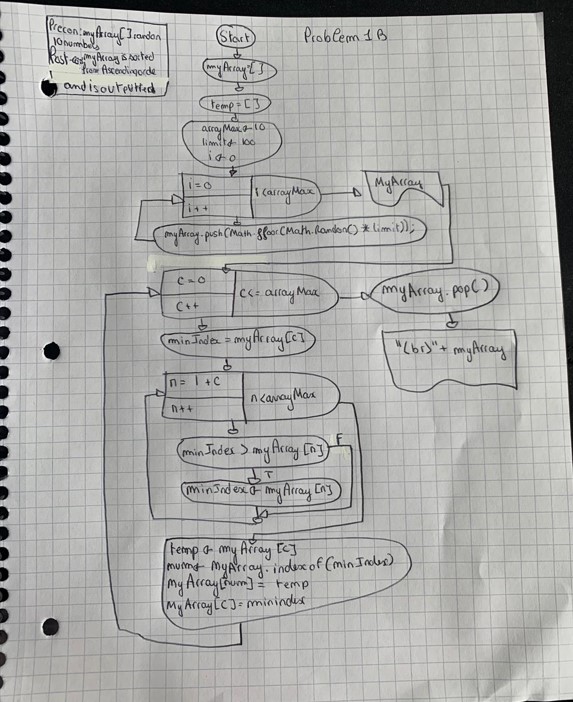 Precon: myArray[] randon
10 numbers
Post- myArray is sorted
from Ascending orde
and is outputted
Start
Problem 1B
myArray=[]
temp=[]
arrayMax ← 10
limit ← 100
i ← 0
i=0
i++
i<arrayMax
MyArray
myArray.push(Math.floor(Math.Random() * limit));
C=0
C++
C<= arrayMax
myArray.pop()
minIndex = myArray[c]
"(br)" + myArray
n= 1+C
n++
n<arrayMax
minIndex > myArray[n]
F
T
minIndex ← myArray[n]
temp ← myArray[c]
num← MyArray.indexof(minIndex)
myArray[num]= temp
MyArray[C]=minindex